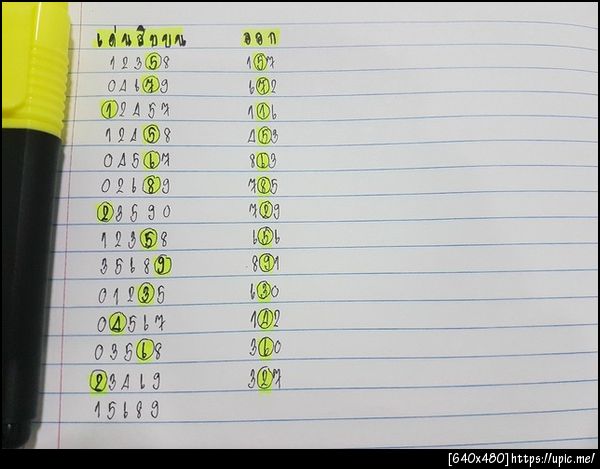 เด่นสิบบน ออก
12358 157
04679 672
12457 116
12458 453
04567 863
02689 785
23590 729
12358 656
35689 891
01235 630
04567 142
03568 360
23469 327
15689
[640x480]https://upic.me/